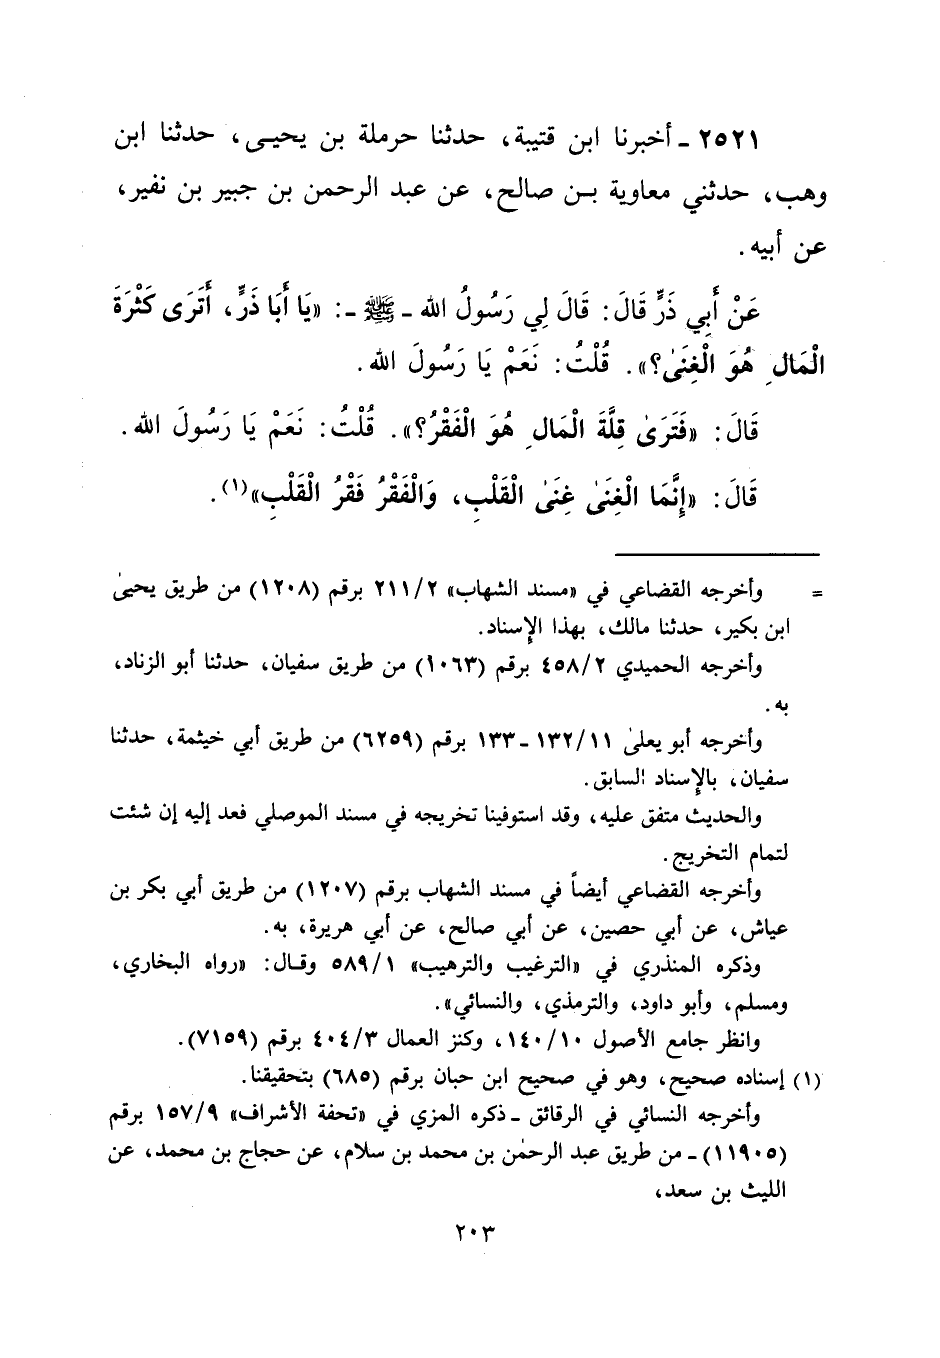 ٢٥٢١ - أخبرنا ابن قتيبة، حدثنا حرملة بن يحيى، حدثنا ابن
وهب، حدثني معاوية بن صالح، عن عبد الرحمن بن جبير بن نفير،
عن أبيه.
عَنْ أَبِي ذَرٍّ قَالَ: قَالَ لِي رَسُولُ الله - ﷺ -: «يَا أَبَا ذَرٍّ، أَتَرَى كَثْرَةَ
الْمَالِ هُوَ الْغِنَىٰ؟». قُلْتُ: نَعَمْ يَا رَسُولَ الله.
قَالَ: «فَتَرَىٰ قِلَّةَ الْمَالِ هُوَ الْفَقْرُ؟». قُلْتُ: نَعَمْ يَا رَسُولَ الله.
قَالَ: «إِنَّمَا الْغِنَىٰ غِنَىٰ الْقَلْبِ، وَالْفَقْرُ فَقْرُ الْقَلْبِ»(١).
= وأخرجه القضاعي في «مسند الشهاب» ٢١١/٢ برقم (١٢٠٨) من طريق يحيىٰ
ابن بكير، حدثنا مالك، بهذا الإسناد.
وأخرجه الحميدي ٤٥٨/٢ برقم (١٠٦٣) من طريق سفيان، حدثنا أبو الزناد،
به.
وأخرجه أبو يعلىٰ ١٣٢/١١ - ١٣٣ برقم (٦٢٥٩) من طريق أبي خيثمة، حدثنا
سفيان، بالإسناد السابق.
والحديث متفق عليه، وقد استوفينا تخريجه في مسند الموصلي فعد إليه إن شئت
لتمام التخريج.
وأخرجه القضاعي أيضاً في مسند الشهاب برقم (١٢٠٧) من طريق أبي بكر بن
عياش، عن أبي حصين، عن أبي صالح، عن أبي هريرة، به.
وذكره المنذري في «الترغيب والترهيب» ٥٨٩/١ وقال: «رواه البخاري،
ومسلم، وأبو داود، والترمذي، والنسائي».
وانظر جامع الأصول ١٤٠/١٠، وكنز العمال ٤٠٤/٣ برقم (٧١٥٩).
(١) إسناده صحيح، وهو في صحيح ابن حبان برقم (٦٨٥) بتحقيقنا.
وأخرجه النسائي في الرقائق - ذكره المزي في «تحفة الأشراف» ١٥٧/٩ برقم
(١١٩٠٥) - من طريق عبد الرحمٰن بن محمد بن سلام، عن حجاج بن محمد، عن
الليث بن سعد،
٢٠٣